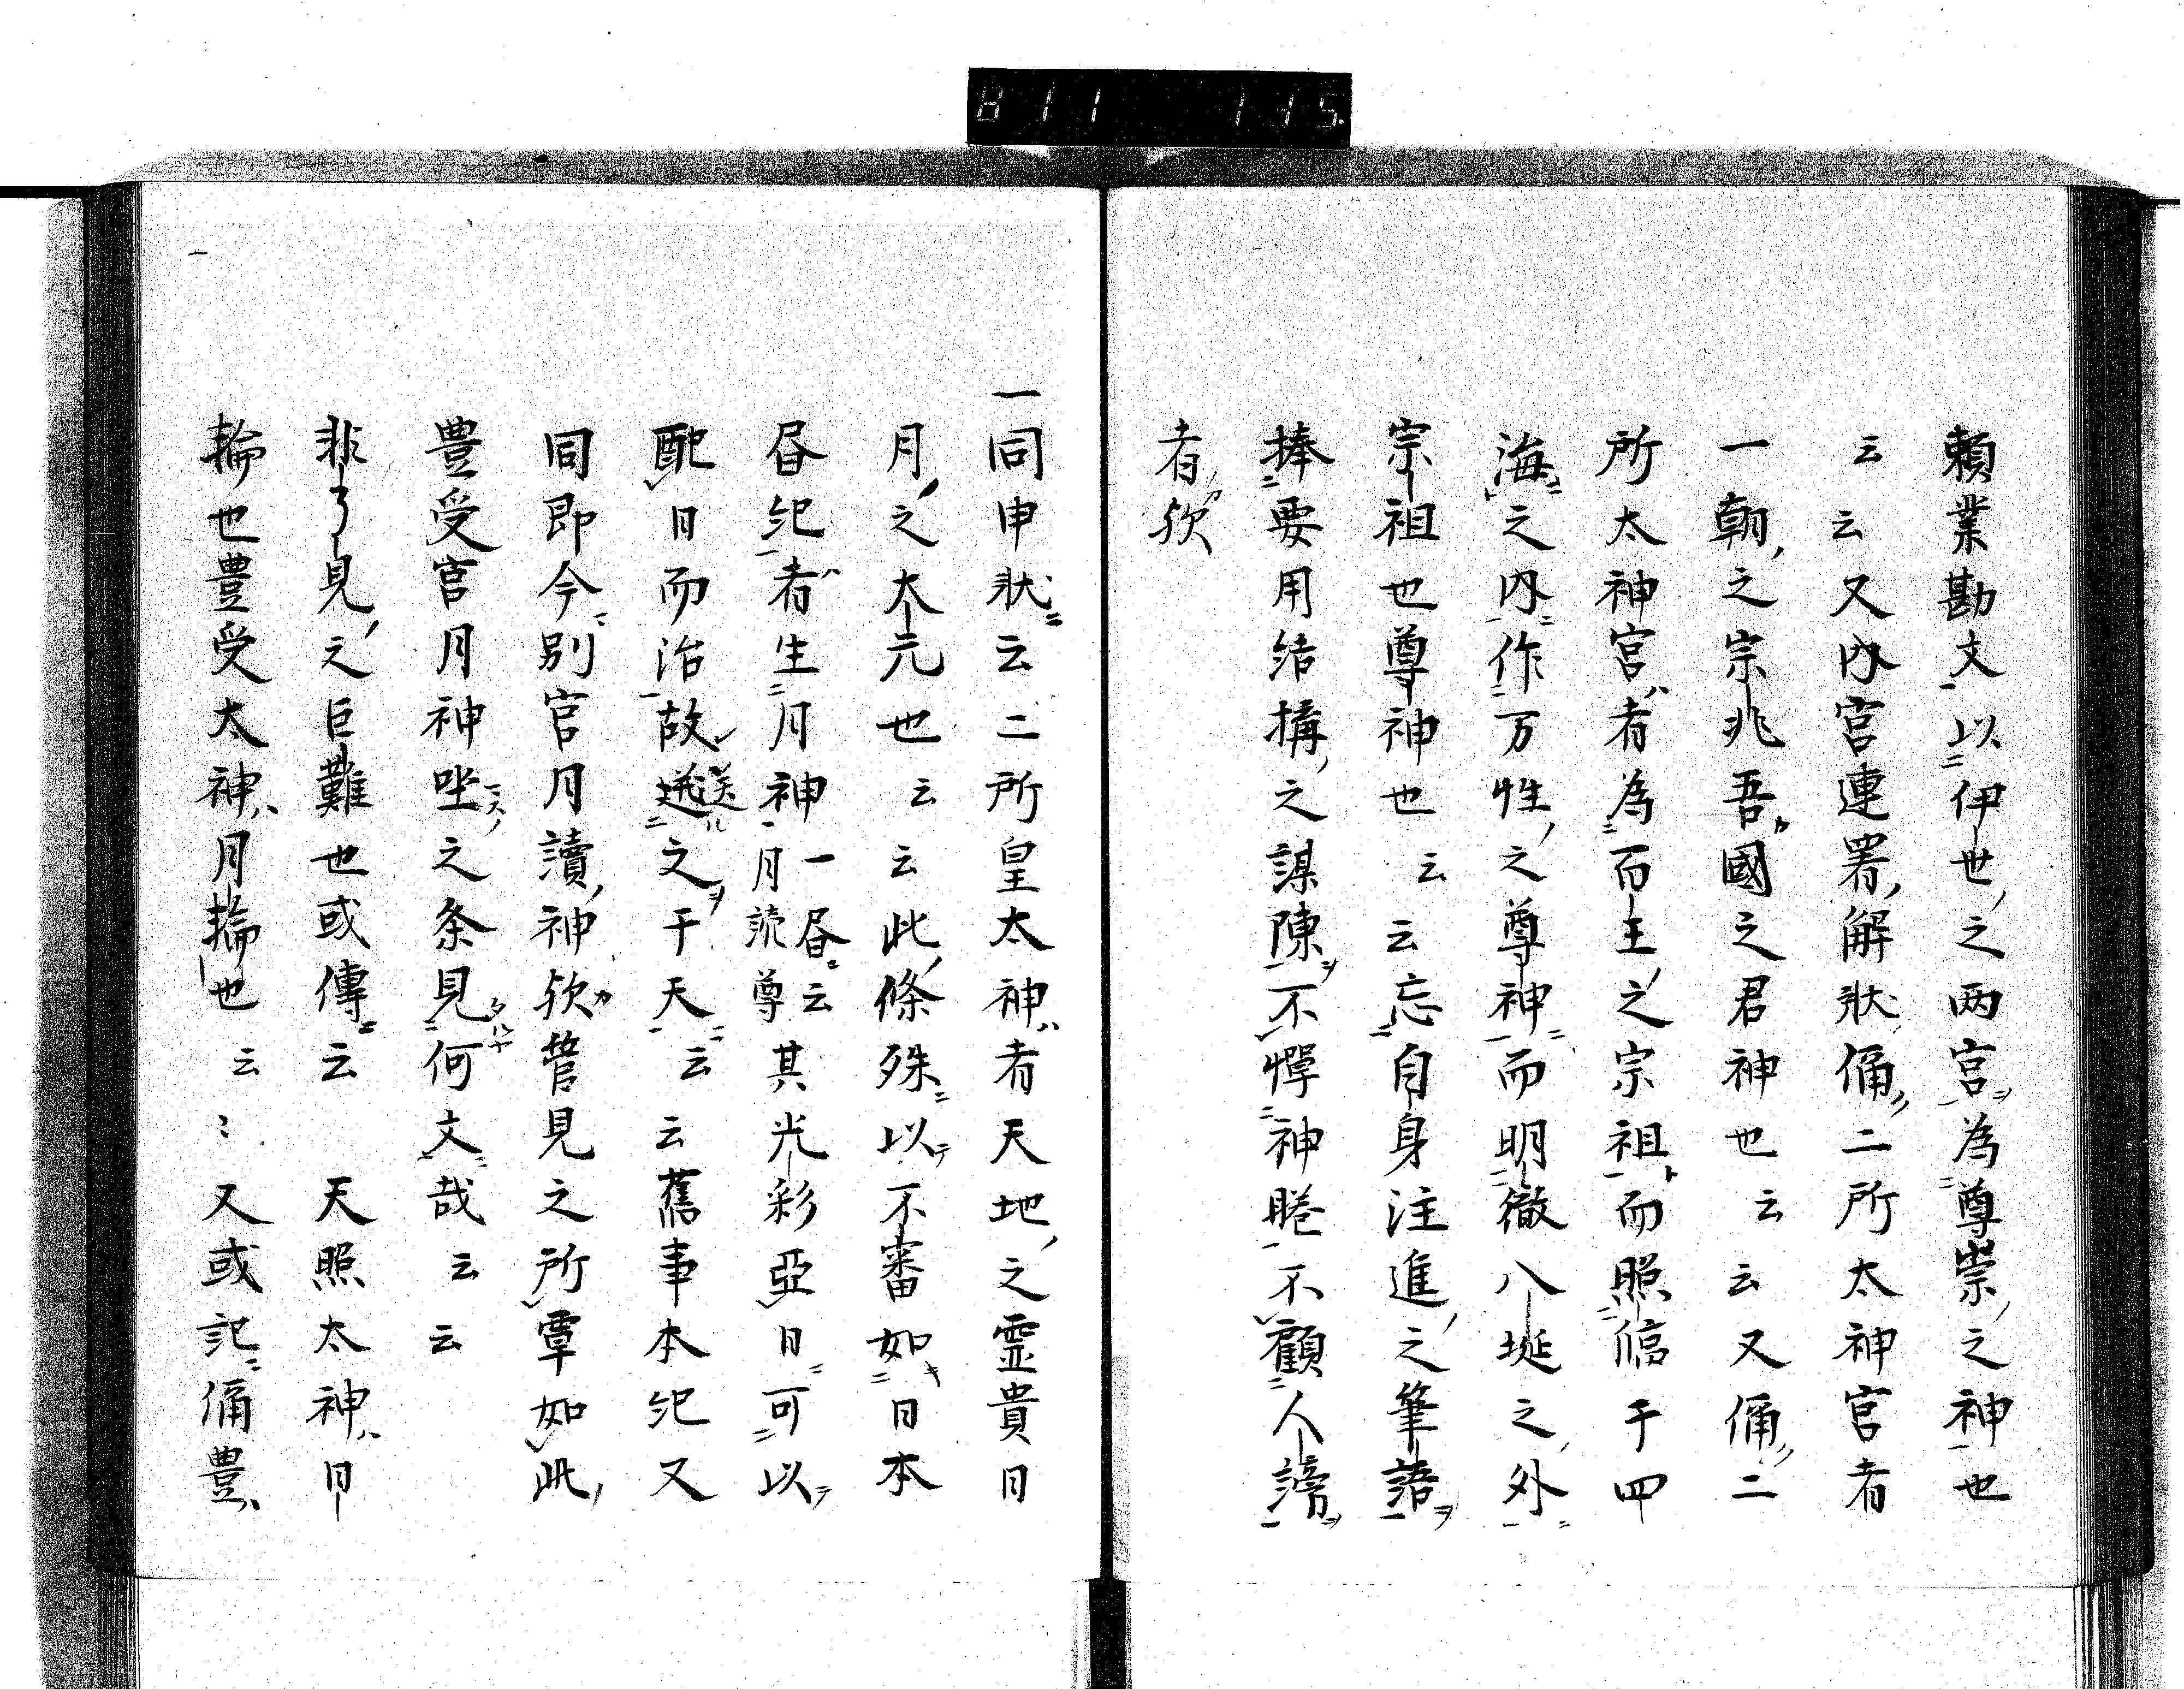 811 115
頼業勘文以伊世之両宮為尊崇之神也
云云又内宮連署解状偁二所太神宮者
一朝之宗兆吾國之君神也云云又偁二
所太神宮者為百王之宗祖而照臨于四
海之内作万性之尊神而明徹八埏之外
宗祖也尊神也云云忘自身注進之筆語
捧要用結搆之謀陳不憚神睠不顧人謗
者欤
一同申状云二所皇太神者天地之霊貴日
月之太元也云云此條殊以不審如日本
昏紀者生月神一昏云月読尊其光彩亞日可以
配日而治故送之于天云云舊事本紀又
同即今別宮月讀神欤管見之所覃如此
豊受宮月神坐之条見何文哉云云
非了見之巨難也或傳云 天照太神日
輪也豊受太神月輪也云々又或記偁豊